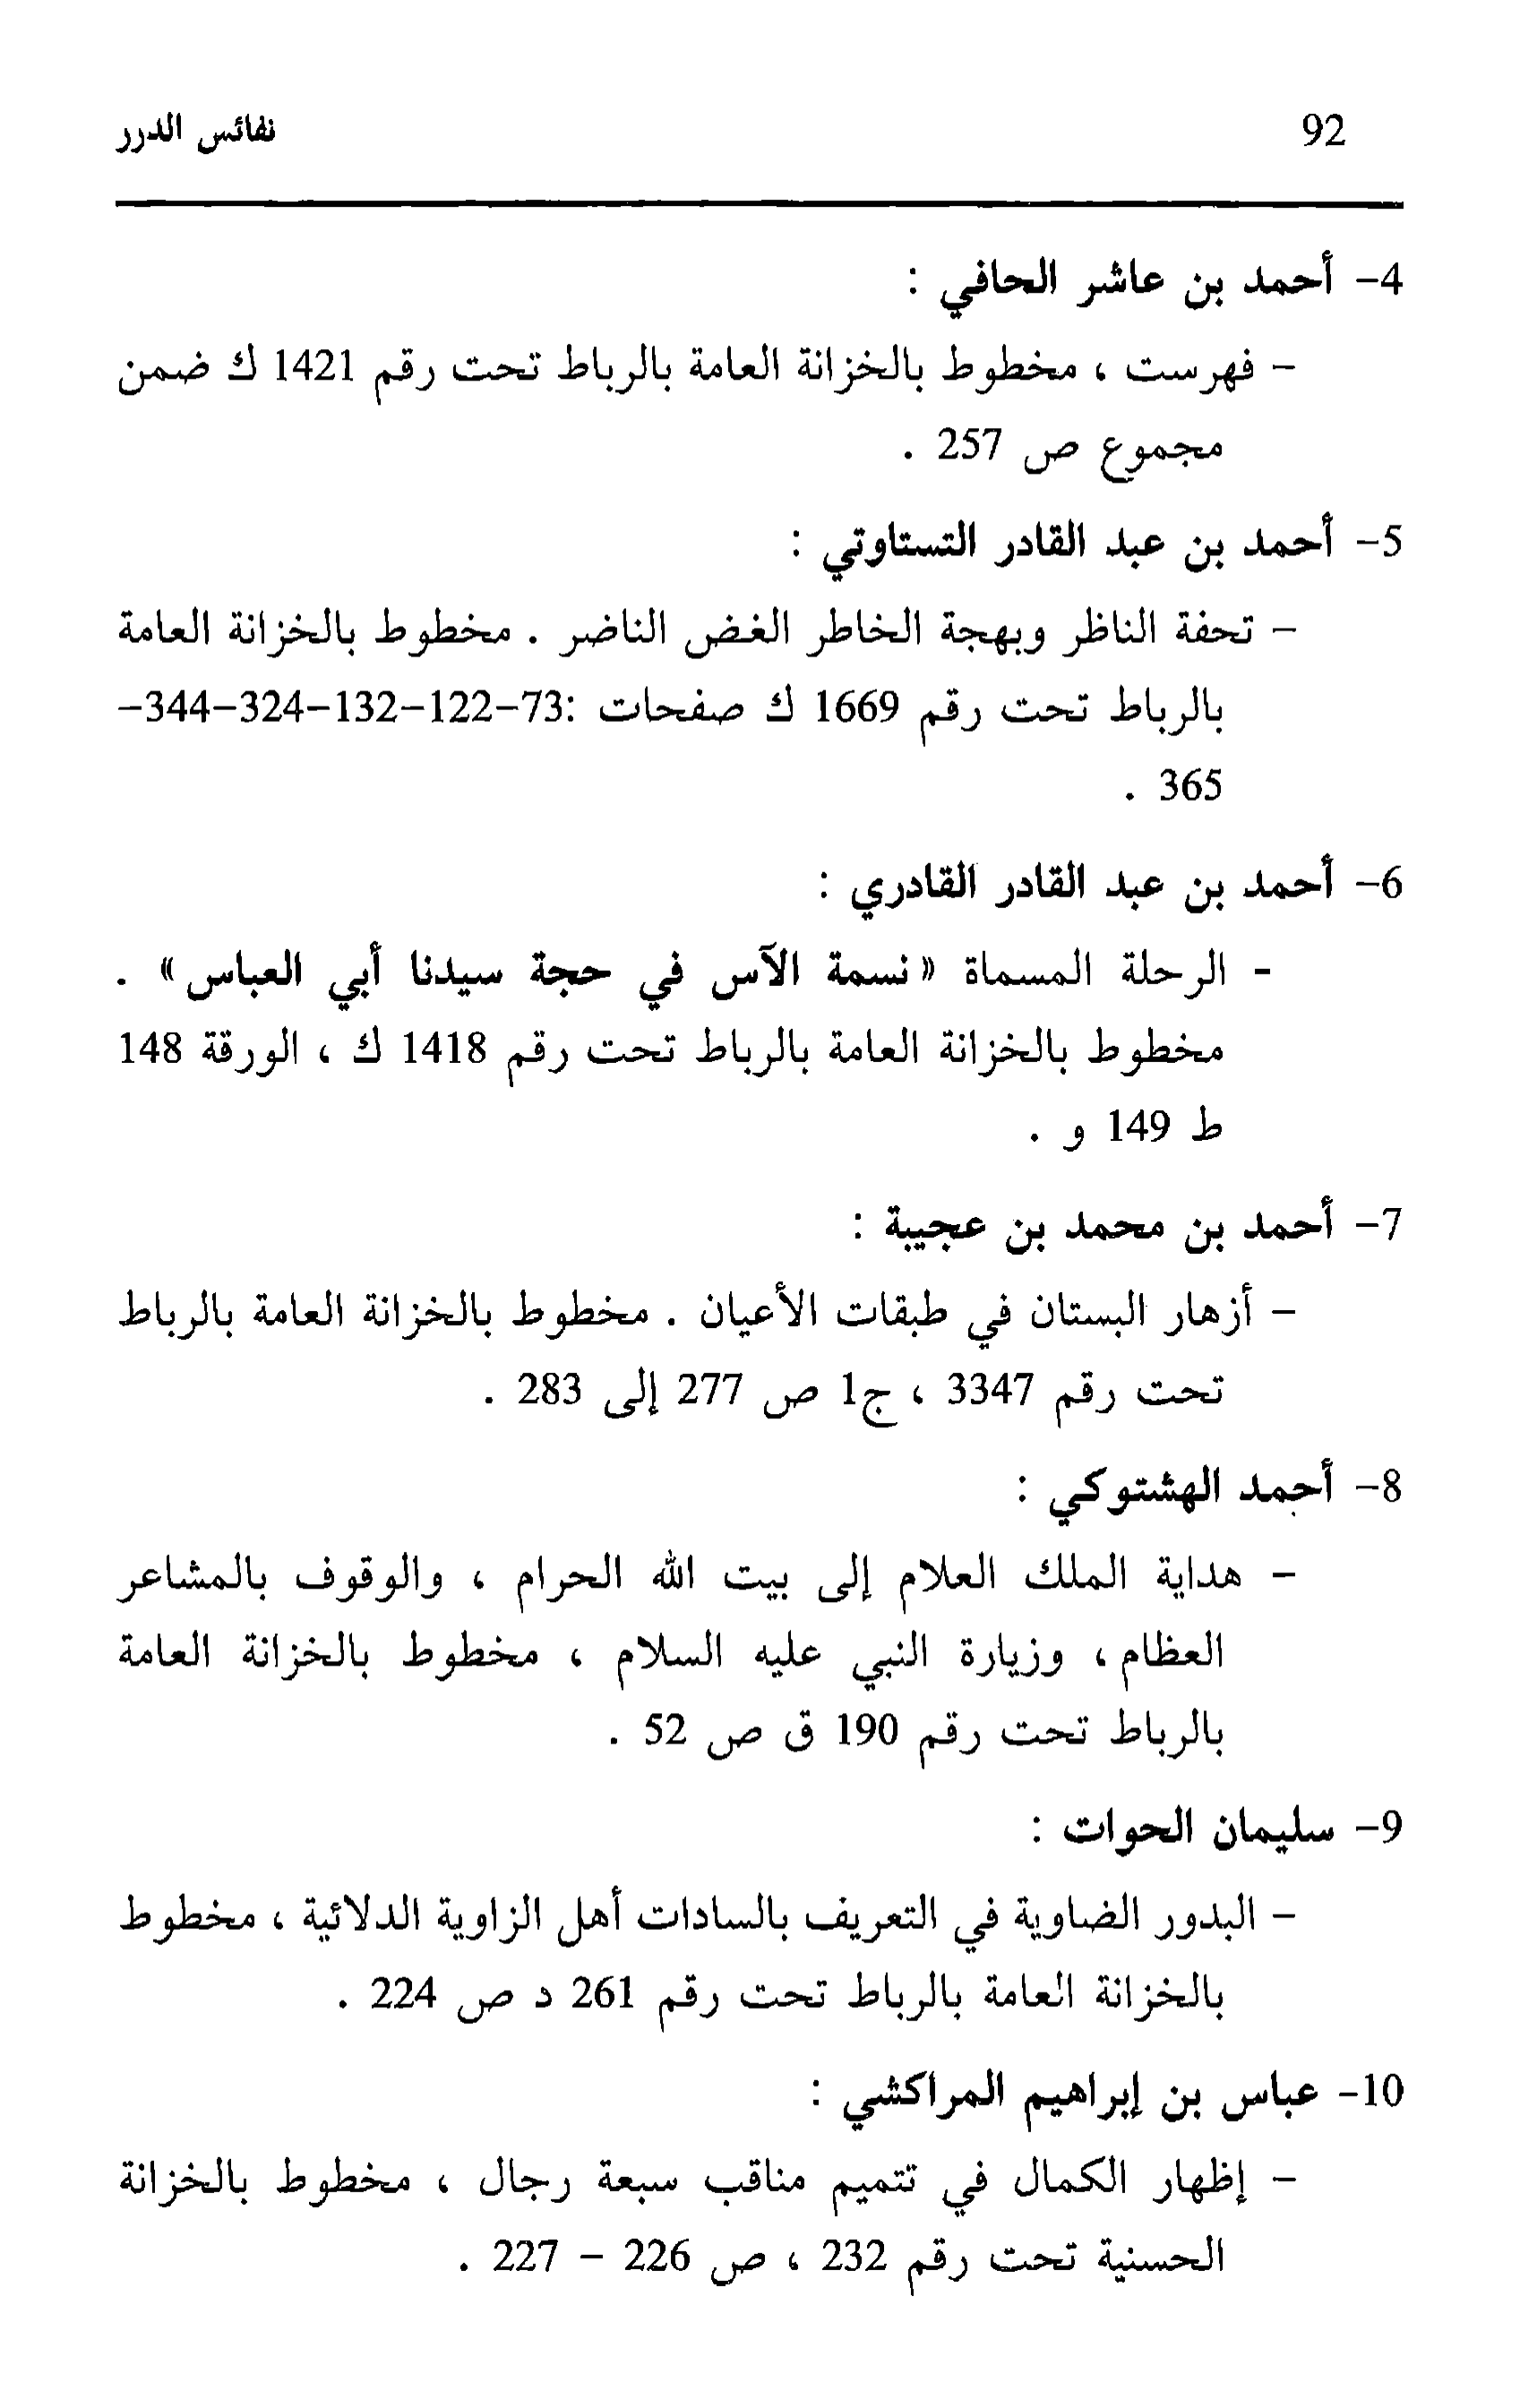 92 نفائس الدرر
4- أحمد بن عاشر الحافي :
- فهرست ، مخطوط بالخزانة العامة بالرباط تحت رقم 1421 ك ضمن
مجموع ص 257 .
5- أحمد بن عبد القادر التستاوتي :
- تحفة الناظر وبهجة الخاطر الغض الناضر . مخطوط بالخزانة العامة
بالرباط تحت رقم 1669 ك صفحات :73-122-132-324-344-
365 .
6- أحمد بن عبد القادر القادري :
- الرحلة المسماة «نسمة الآس في حجة سيدنا أبي العباس» .
مخطوط بالخزانة العامة بالرباط تحت رقم 1418 ك ، الورقة 148
ط 149 و .
7- أحمد بن محمد بن عجيبة :
- أزهار البستان في طبقات الأعيان . مخطوط بالخزانة العامة بالرباط
تحت رقم 3347 ، ج1 ص 277 إلى 283 .
8- أجمد الهشتوكي :
- هداية الملك العلام إلى بيت الله الحرام ، والوقوف بالمشاعر
العظام ، وزيارة النبي عليه السلام ، مخطوط بالخزانة العامة
بالرباط تحت رقم 190 ق ص 52 .
9- سليمان الحوات :
- البدور الضاوية في التعريف بالسادات أهل الزاوية الدلائية ، مخطوط
بالخزانة العامة بالرباط تحت رقم 261 د ص 224 .
10- عباس بن إبراهيم المراكشي :
- إظهار الكمال في تتميم مناقب سبعة رجال ، مخطوط بالخزانة
الحسنية تحت رقم 232 ، ص 226 - 227 .